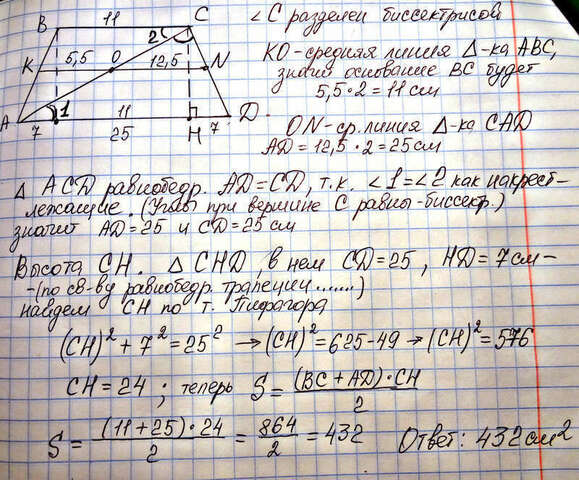 B 11 C
2
K 5,5 O 12,5 N
1 11
A 7 25 H 7 D
∠C разделен биссектрисой
KO - средняя линия Δ-ка ABC,
значит основание BC будет
5,5·2 = 11 см
ON - ср. линия Δ-ка CAD
AD = 12,5·2 = 25 см
Δ ACD равнобедр. AD = CD, т.к. ∠1 = ∠2 как накрест-
лежащие. (Углы при вершине C равны - биссектр.)
значит AD = 25 и CD = 25 см
Высота CH. Δ CHD, в нем CD = 25, HD = 7 см -
- (по св-ву равнобедр. трапеции.......)
найдем CH по т. Пифагора
(CH)² + 7² = 25² → (CH)² = 625 - 49 → (CH)² = 576
CH = 24 ; теперь S = (BC + AD)·CH / 2
S = (11 + 25)·24 / 2 = 864 / 2 = 432 Ответ: 432 см²